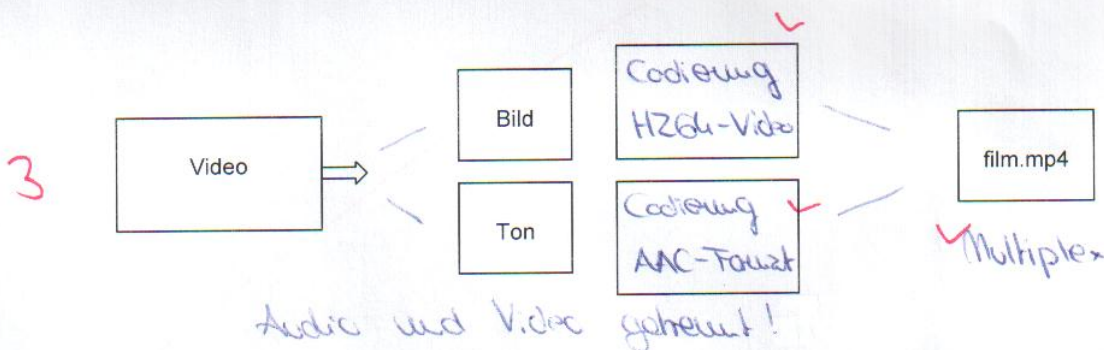 3
Video
Bild
Ton
Codierung
H264-Video
Codierung
AAC-Format
film.mp4
Multiplex
Audio und Video getrennt!